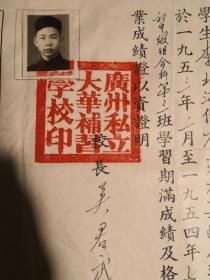 學生李
於一九五三年 月至一九五四年七
科第 班學習期滿成績及格
業成績證以資證明
廣州私立
大華補習
學校印
校長 吴君武